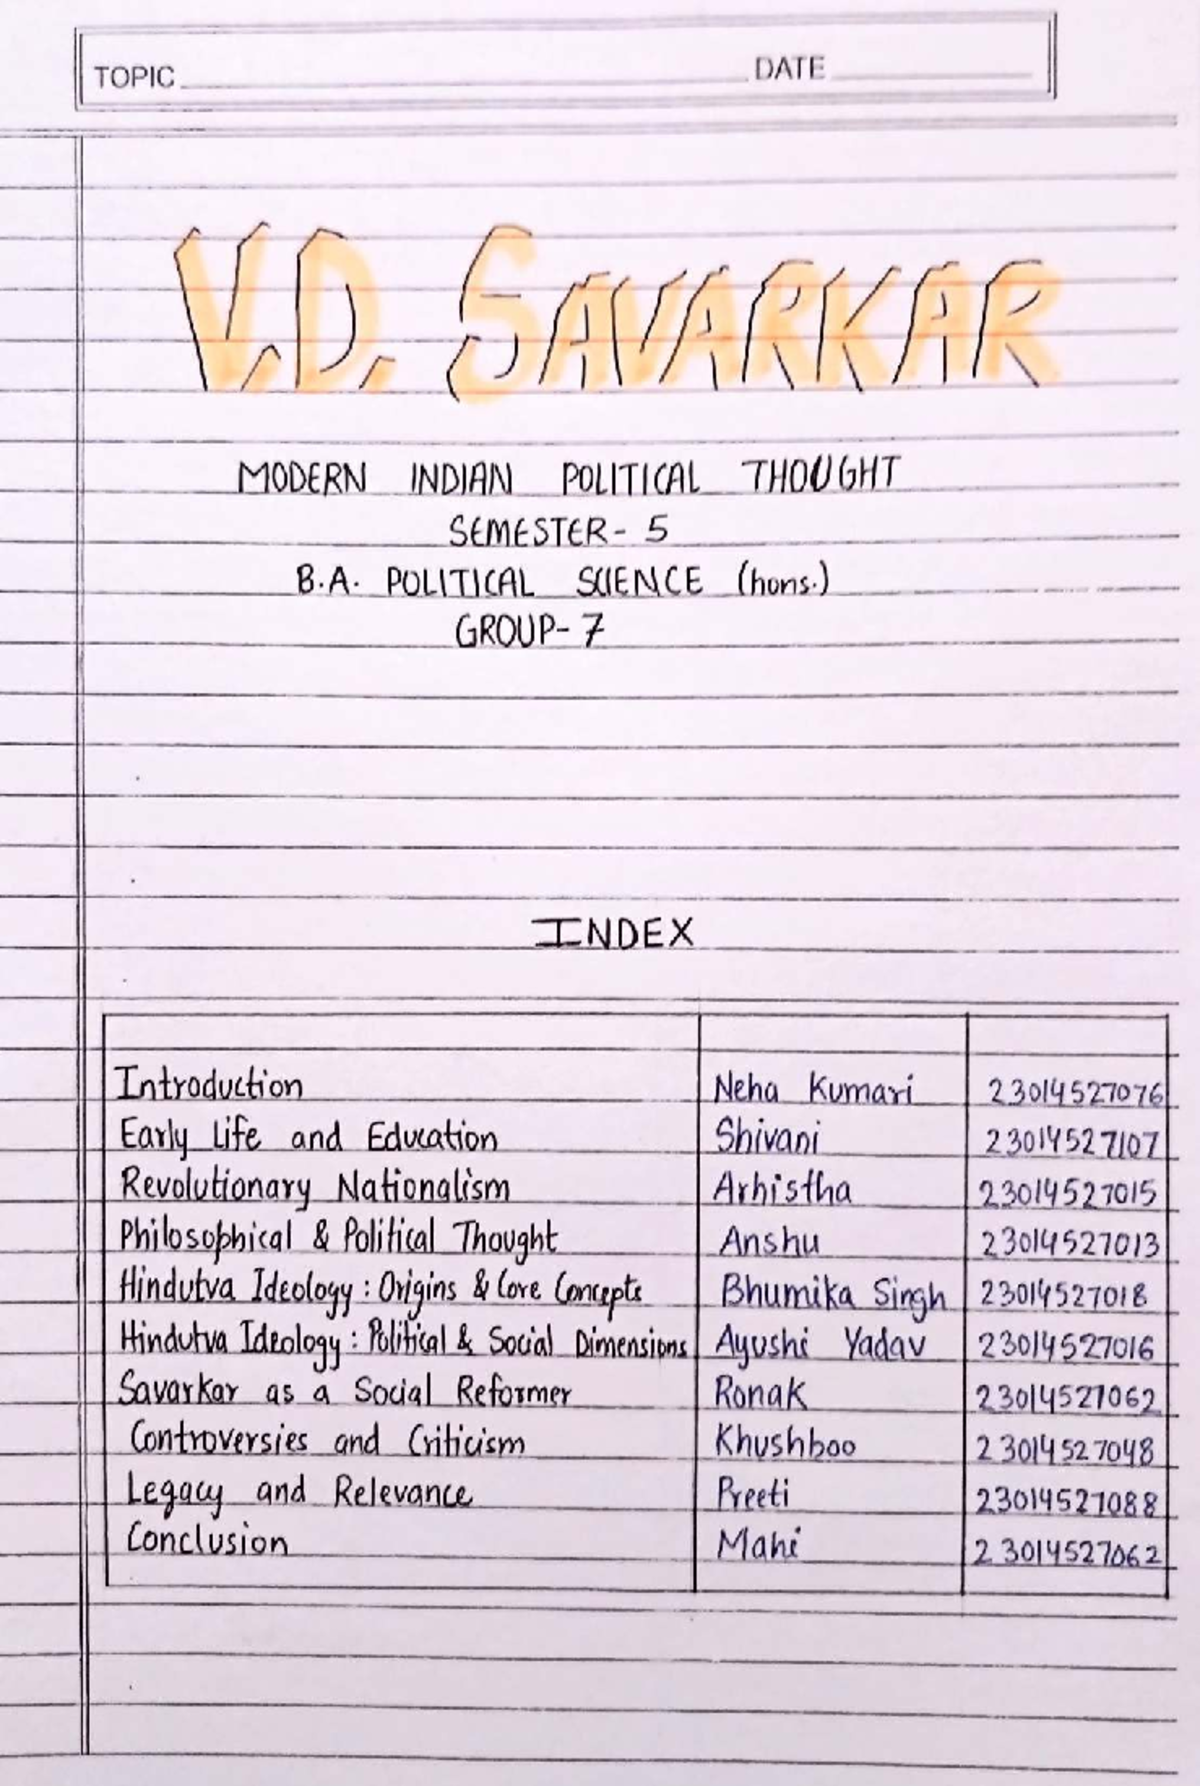 TOPIC DATE
V.D. SAVARKAR
MODERN INDIAN POLITICAL THOUGHT
SEMESTER- 5
B.A. POLITICAL SCIENCE (hons.)
GROUP- 7
INDEX
Introduction Neha Kumari 23014527076
Early Life and Education Shivani 23014527107
Revolutionary Nationalism Arhistha 23014527015
Philosophical & Political Thought Anshu 23014527013
Hindutva Ideology : Origins & Core Concepts Bhumika Singh 23014527018
Hindutva Ideology : Political & Social Dimensions Ayushi Yadav 23014527016
Savarkar as a Social Reformer Ronak 23014527062
Controversies and Criticism Khushboo 23014527048
Legacy and Relevance Preeti 23014527088
Conclusion Mahi 23014527062